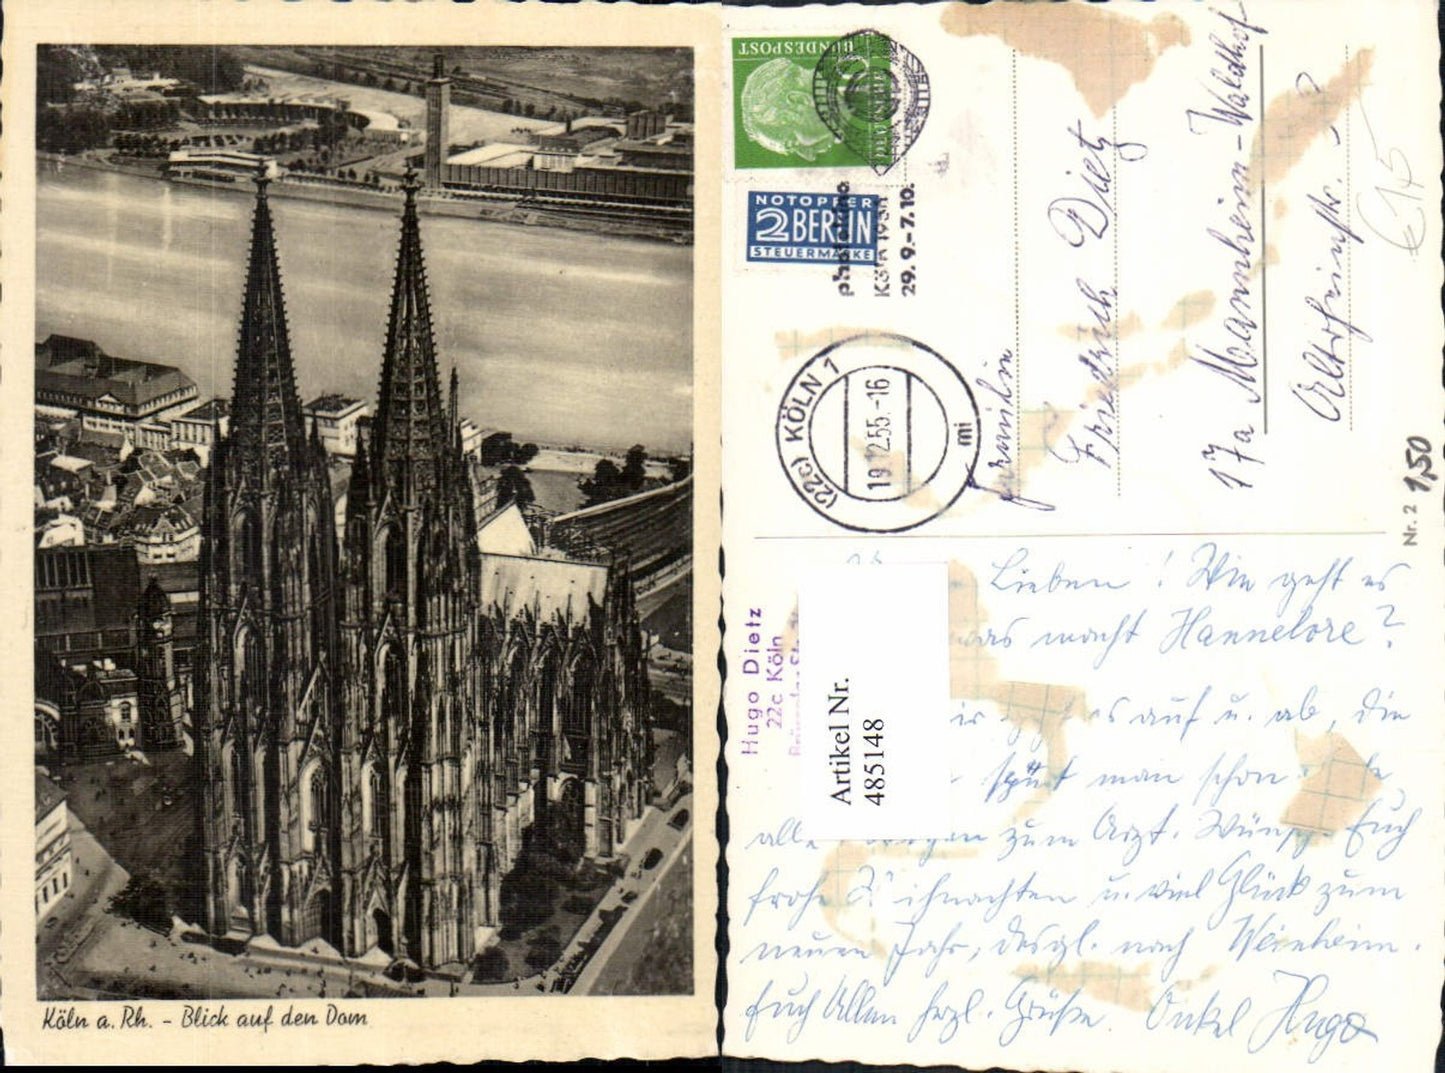 Köln a. Rh. - Blick auf den Dom
BUNDESPOST
NOTOPFER
2 BERLIN
STEUERMARKE
photokina
Köln 1956
29. 9.-7. 10.
(22c) KÖLN 1
19.12.55.-16
mi
Familie
Friedrich Dietz
17a Mannheim-Waldhof
Altrheinstr.
€ 15
Nr. 2 1,50
Hugo Dietz
22c Köln
Artikel Nr.
485148
Lieben! Wie geht es
was macht Hannelore?
es auf u. ab, die
spürt man schon
zum Arzt. Wünsche Euch
frohe Weihnachten u. viel Glück zum
neuen Jahr, desgl. nach Weinheim.
Euch Allen herzl. Grüße. Onkel Hugo